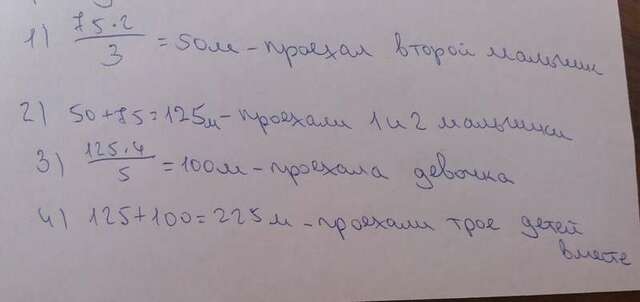 1) 75·2/3 = 50м - проехал второй мальчик
2) 50+75=125м - проехали 1 и 2 мальчики
3) 125·4/5 = 100м - проехала девочка
4) 125+100=225м - проехали трое детей
вместе